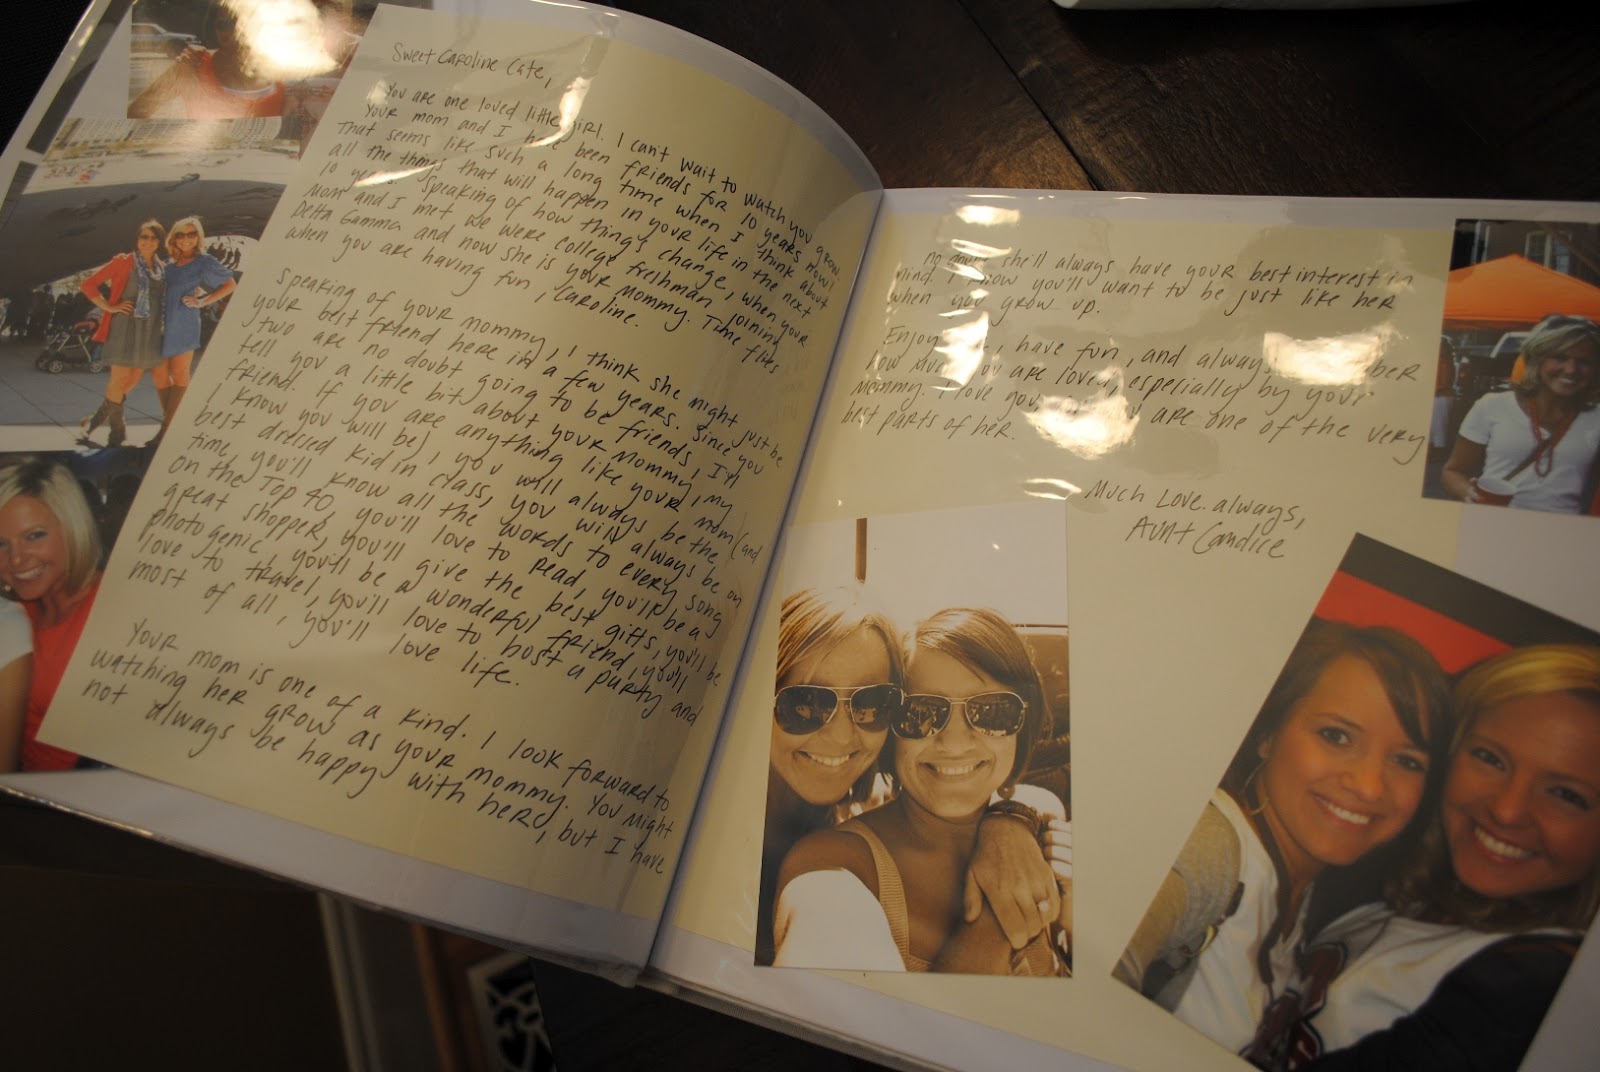 Sweet Caroline Cate,
You are one loved little girl. I can't wait to watch you grow.
Your mom and I have been friends for 10 years now!
That seems like such a long time when I think about
all the things that will happen in your life in the next
10 years. Speaking of how things change, when your
Mom and I met we were college freshman joining
Delta Gamma and now she is your Mommy. Time flies
when you are having fun, Caroline.
Speaking of your mommy, I think she might just be
your best friend here in a few years. Since you
two are no doubt going to be friends, I'll
tell you a little bit about your Mommy, my
friend. If you are anything like your mom (and
I know you will be), you will always be the
best dressed kid in class, you will always be on
time, you'll know all the words to every song
on the Top 40, you'll love to read, you'll be a
great shopper, you'll give the best gifts, you'll be
photogenic, you'll be a wonderful friend, you'll
love to travel, you'll love to host a party and
most of all, you'll love life.
Your mom is one of a kind. I look forward to
watching her grow as your mommy. You might
not always be happy with her, but I have
no doubt she'll always have your best interest in
mind. I know you'll want to be just like her
when you grow up.
Enjoy, have fun, and always
how much you are loved, especially by your
Mommy. I love you, you are one of the very
best parts of her.
Much Love. always,
Aunt Candice